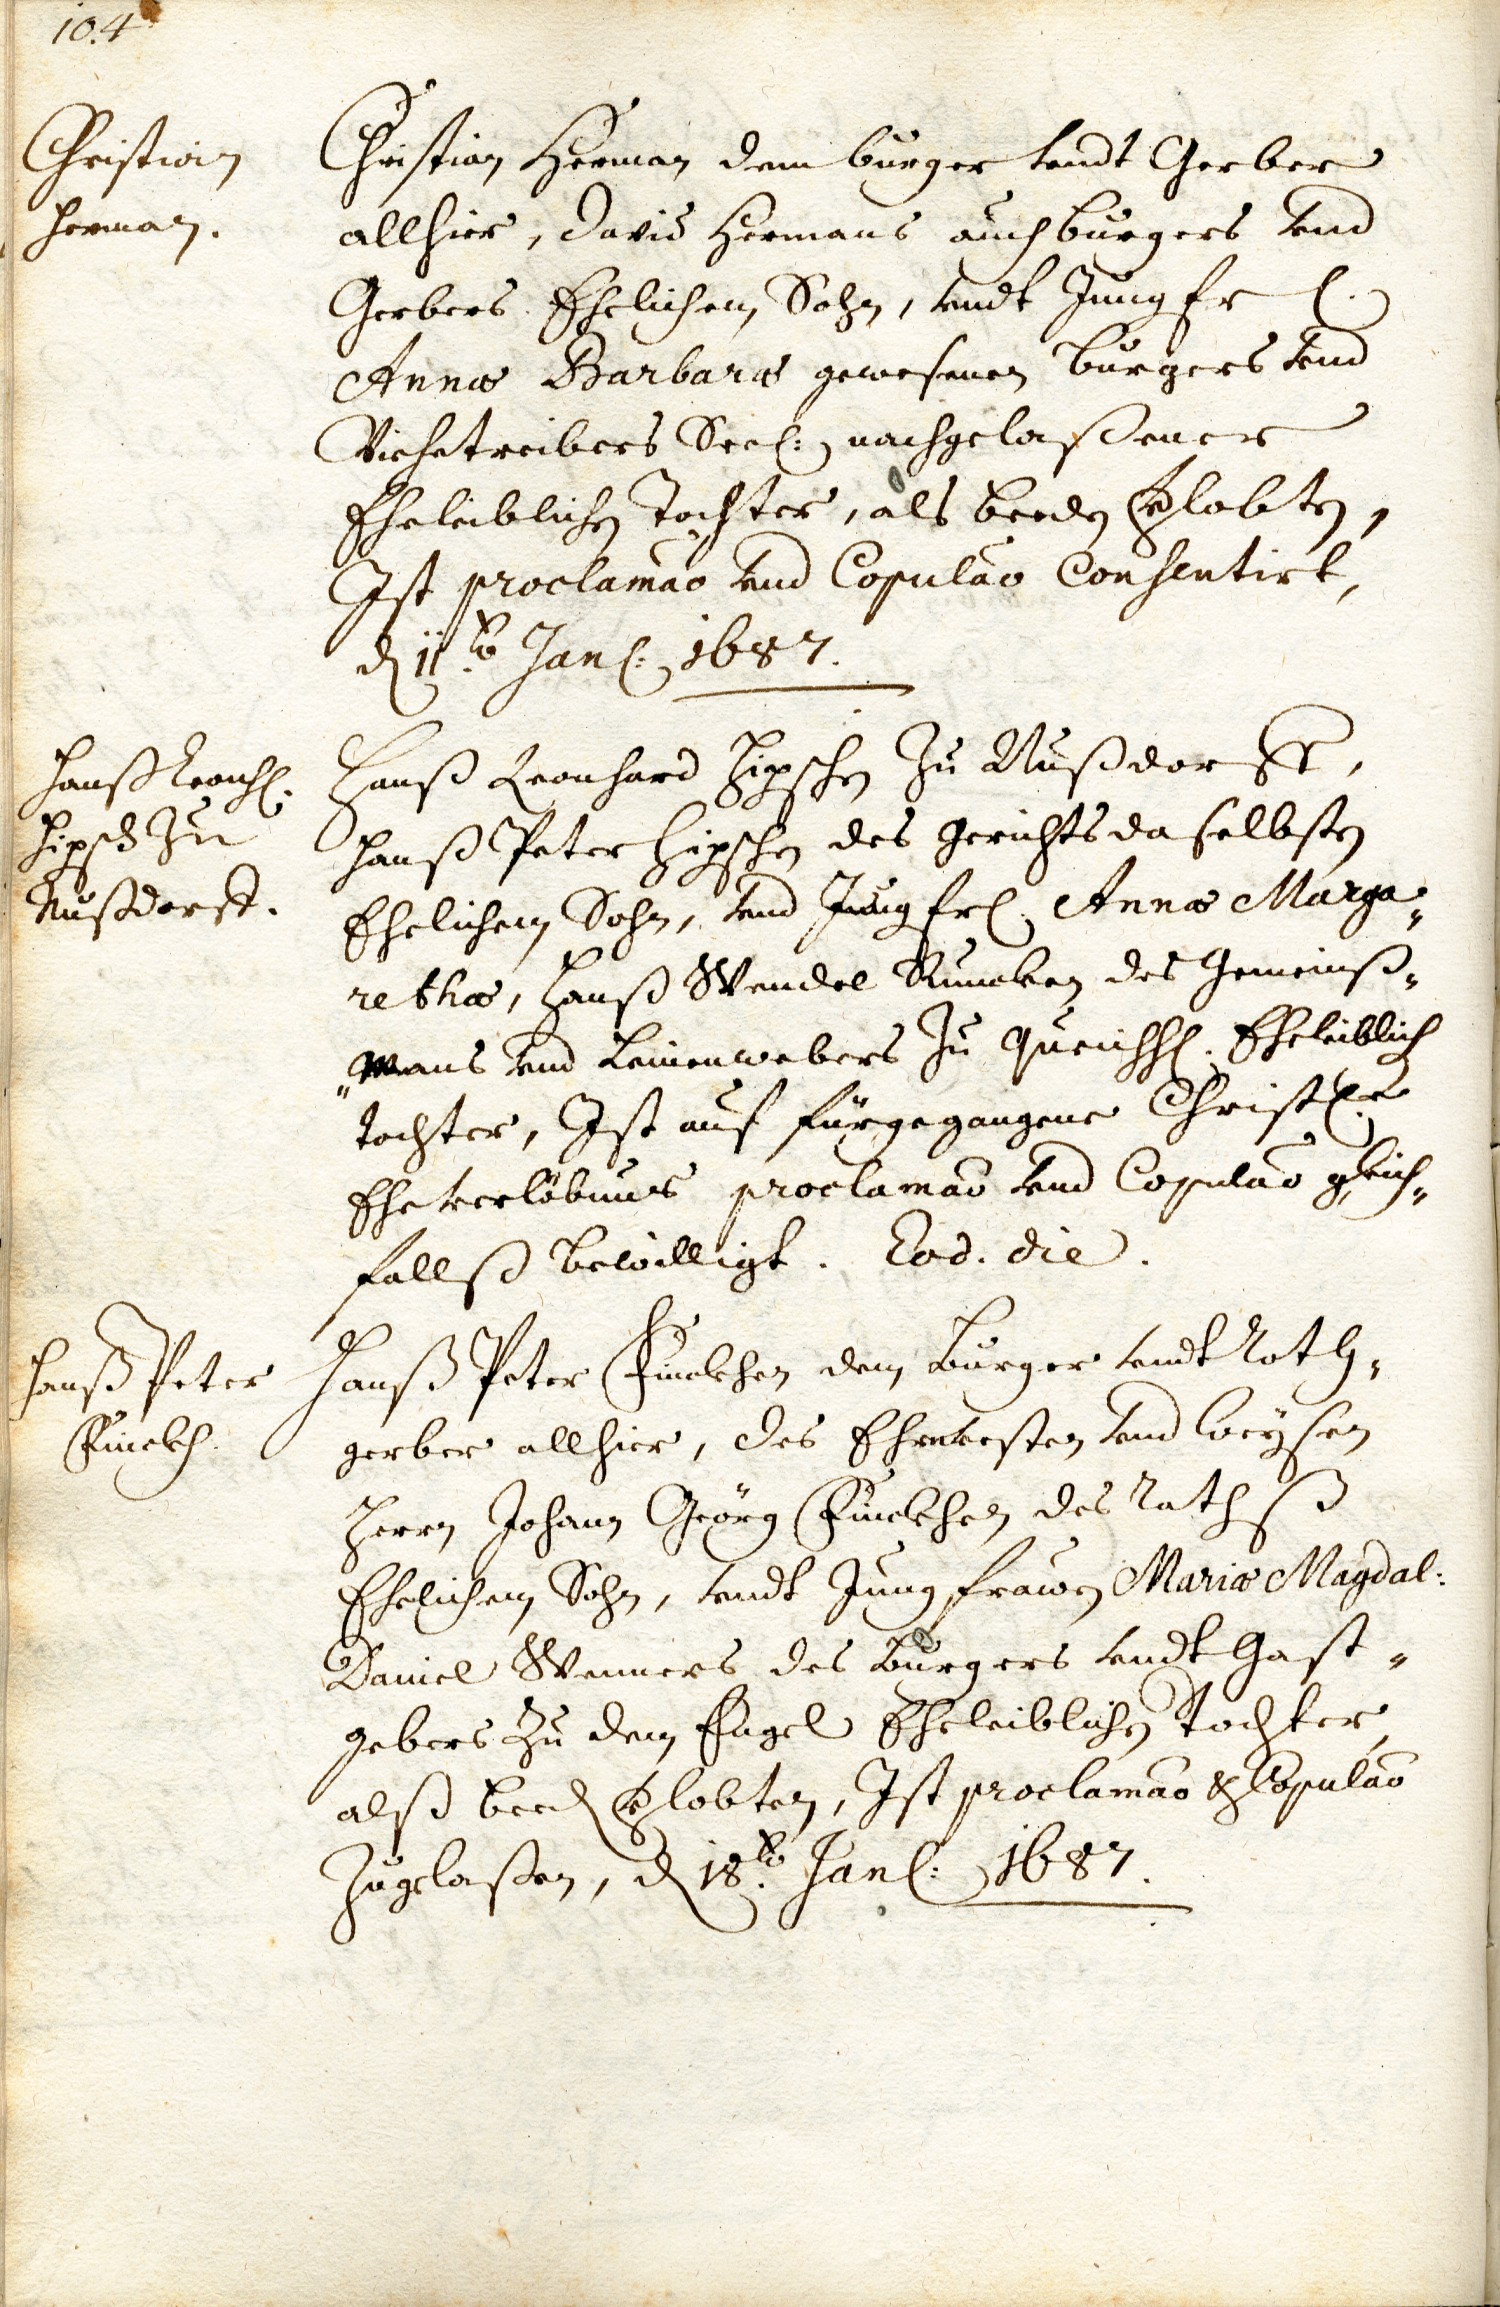 104
Christian
Herman.
Christian Herman dem burger vndt Gerber
allhier, David Hermans auch burgers vnd
Gerbers Ehelichem Sohn, vndt Jungfr.
Annæ Barbaræ gewesenen burgers vnd
Viehetreibers Seel: nachgelaßener
Eheleiblichen Tochter, als beeden Verlobten,
Ist proclamaõ vnd Copulaõ Consentirt,
d 11.ten Jan: 1687.
Hanß Leonh.
Zipsch zu
Nußdorff.
Hanß Leonhard Zipschen zu Nußdorff,
Hanß Peter Zipschen des Gerichts daselbsten
Ehelichem Sohn, vnd Jungfr. Annæ Marga-
rethæ, Hanß Wendel des Gemeinß-
mans vnd Leinenwebers zu Queichh. Eheleiblich
tochter, Ist auf fürgegangene Christl.
Eheverlöbnus proclamaõ vnd Copulaõ gleich-
fallß bewilligt. Eod. die.
Hanß Peter
Finckh.
Hanß Peter Finckhen dem Burger vndt Roth-
gerber allhier, des Ehrnvesten vnd Weysen
Herrn Johann Geörg Finckhen des Rathß
Ehelichem Sohn, vndt Jungfrawen Mariæ Magdal:
Daniel Wenners des Burgers vndt Gast-
gebers zu dem Engel Eheleiblichen Tochter,
alß beed Verlobten, Ist proclamaõ & Copulaõ
Zugelaßen, d 18.ten Jan: 1687.